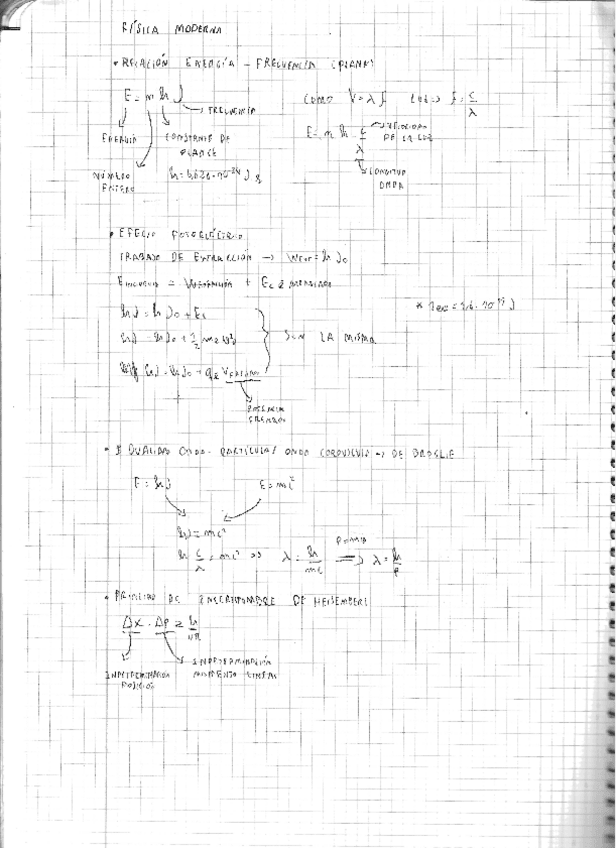 FÍSICA MODERNA
• RELACIÓN ENERGÍA - FRECUENCIA (PLANK)
E = n h ν
FRECUENCIA
ENERGÍA
CONSTANTE DE PLANCK
NÚMERO ENTERO
COMO V = λ f
f = c/λ
E = n h c/λ
VELOCIDAD DE LA LUZ
LONGITUD ONDA
• EFECTO FOTOELÉCTRICO
TRABAJO DE EXTRACCIÓN → Wext = h ν0
hν = hν0 + Ec
hν = hν0 + 1/2 me v²
hν = hν0 + qe V
SON LA MISMA
POTENCIAL FRENADO
DUALIDAD ONDA - PARTÍCULA / ONDA CORPÚSCULO → DE BROGLIE
E = hν
E = mc²
hν = mc²
h c/λ = mc² => λ = h/mc => λ = h/p
• PRINCIPIO DE INCERTIDUMBRE DE HEISEMBERG
Δx · Δp ≥ h/4π
INDETERMINACIÓN POSICIÓN
INDETERMINACIÓN MOMENTO LINEAL